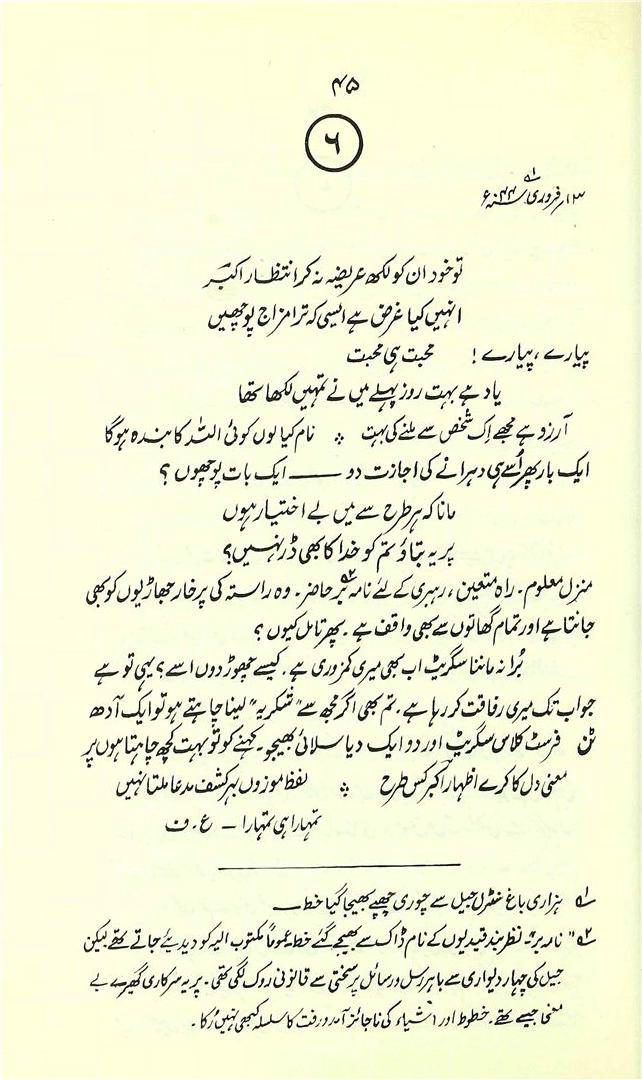 ۴۵
۶
۱۳؍ فروری ۴۴ء ؂۱
تو خود ان کو لکھ عریضہ نہ کر انتظار اکبرؔ
انہیں کیا غرض ہے ایسی کہ ترا مزاج پوچھیں
پیارے، پیارے! محبت ہی محبت
یاد ہے بہت روز پہلے میں نے تمہیں لکھا تھا
آرزو ہے مجھے اِک شخص سے ملنے کی بہت ؛ نام کیا لوں کوئی اللہ کا بندہ ہوگا
ایک بار پھر اُسے ہی دہرانے کی اجازت دو —— ایک بات پوچھوں؟
مانا کہ ہر طرح سے میں بے اختیار ہوں
پر یہ بتاؤ تم کو خدا کا بھی ڈر نہیں؟
منزل معلوم۔ راہ متعین، رہبری کے لئے نامہ بر ؂۲ حاضر۔ وہ راستہ کی پرخار جھاڑیوں کو بھی
جانتا ہے اور تمام گھاتوں سے بھی واقف ہے۔ پھر تامل کیوں؟
بُرا نہ ماننا سگریٹ اب بھی میری کمزوری ہے۔ کیسے چھوڑ دوں اسے؟ یہی تو ہے
جو اب تک میری رفاقت کر رہا ہے۔ تم بھی اگر مجھ سے "شکریہ" لینا چاہتے ہو تو ایک آدھ
ٹن فرسٹ کلاس سگریٹ اور دو ایک دیا سلائی بھیجو۔ کہنے کو تو بہت کچھ چاہتا ہوں پر
معنی دل کا کرے اظہار اکبر کس طرح ؛ لفظ موزوں بہر کشف مدعا ملتا نہیں
تمہارا ہی تمہارا — ع۔ف
؂۱ ہزاری باغ سنٹرل جیل سے چوری چھپے بھیجا گیا خط —
؂۲ "نامہ بر" نظر بند قیدیوں کے نام ڈاک سے بھیجے گئے خط عموماً مکتوب الیہ کو دیدیئے جاتے تھے لیکن
جیل کی چہار دیواری سے باہر رسل و رسائل پر سختی سے قانونی روک لگی تھی۔ پر یہ سرکاری گھیرے بے
معنی جیسے تھے۔ خطوط اور اشیاء کی ناجائز آمد و رفت کا سلسلہ کبھی نہیں رُکا۔